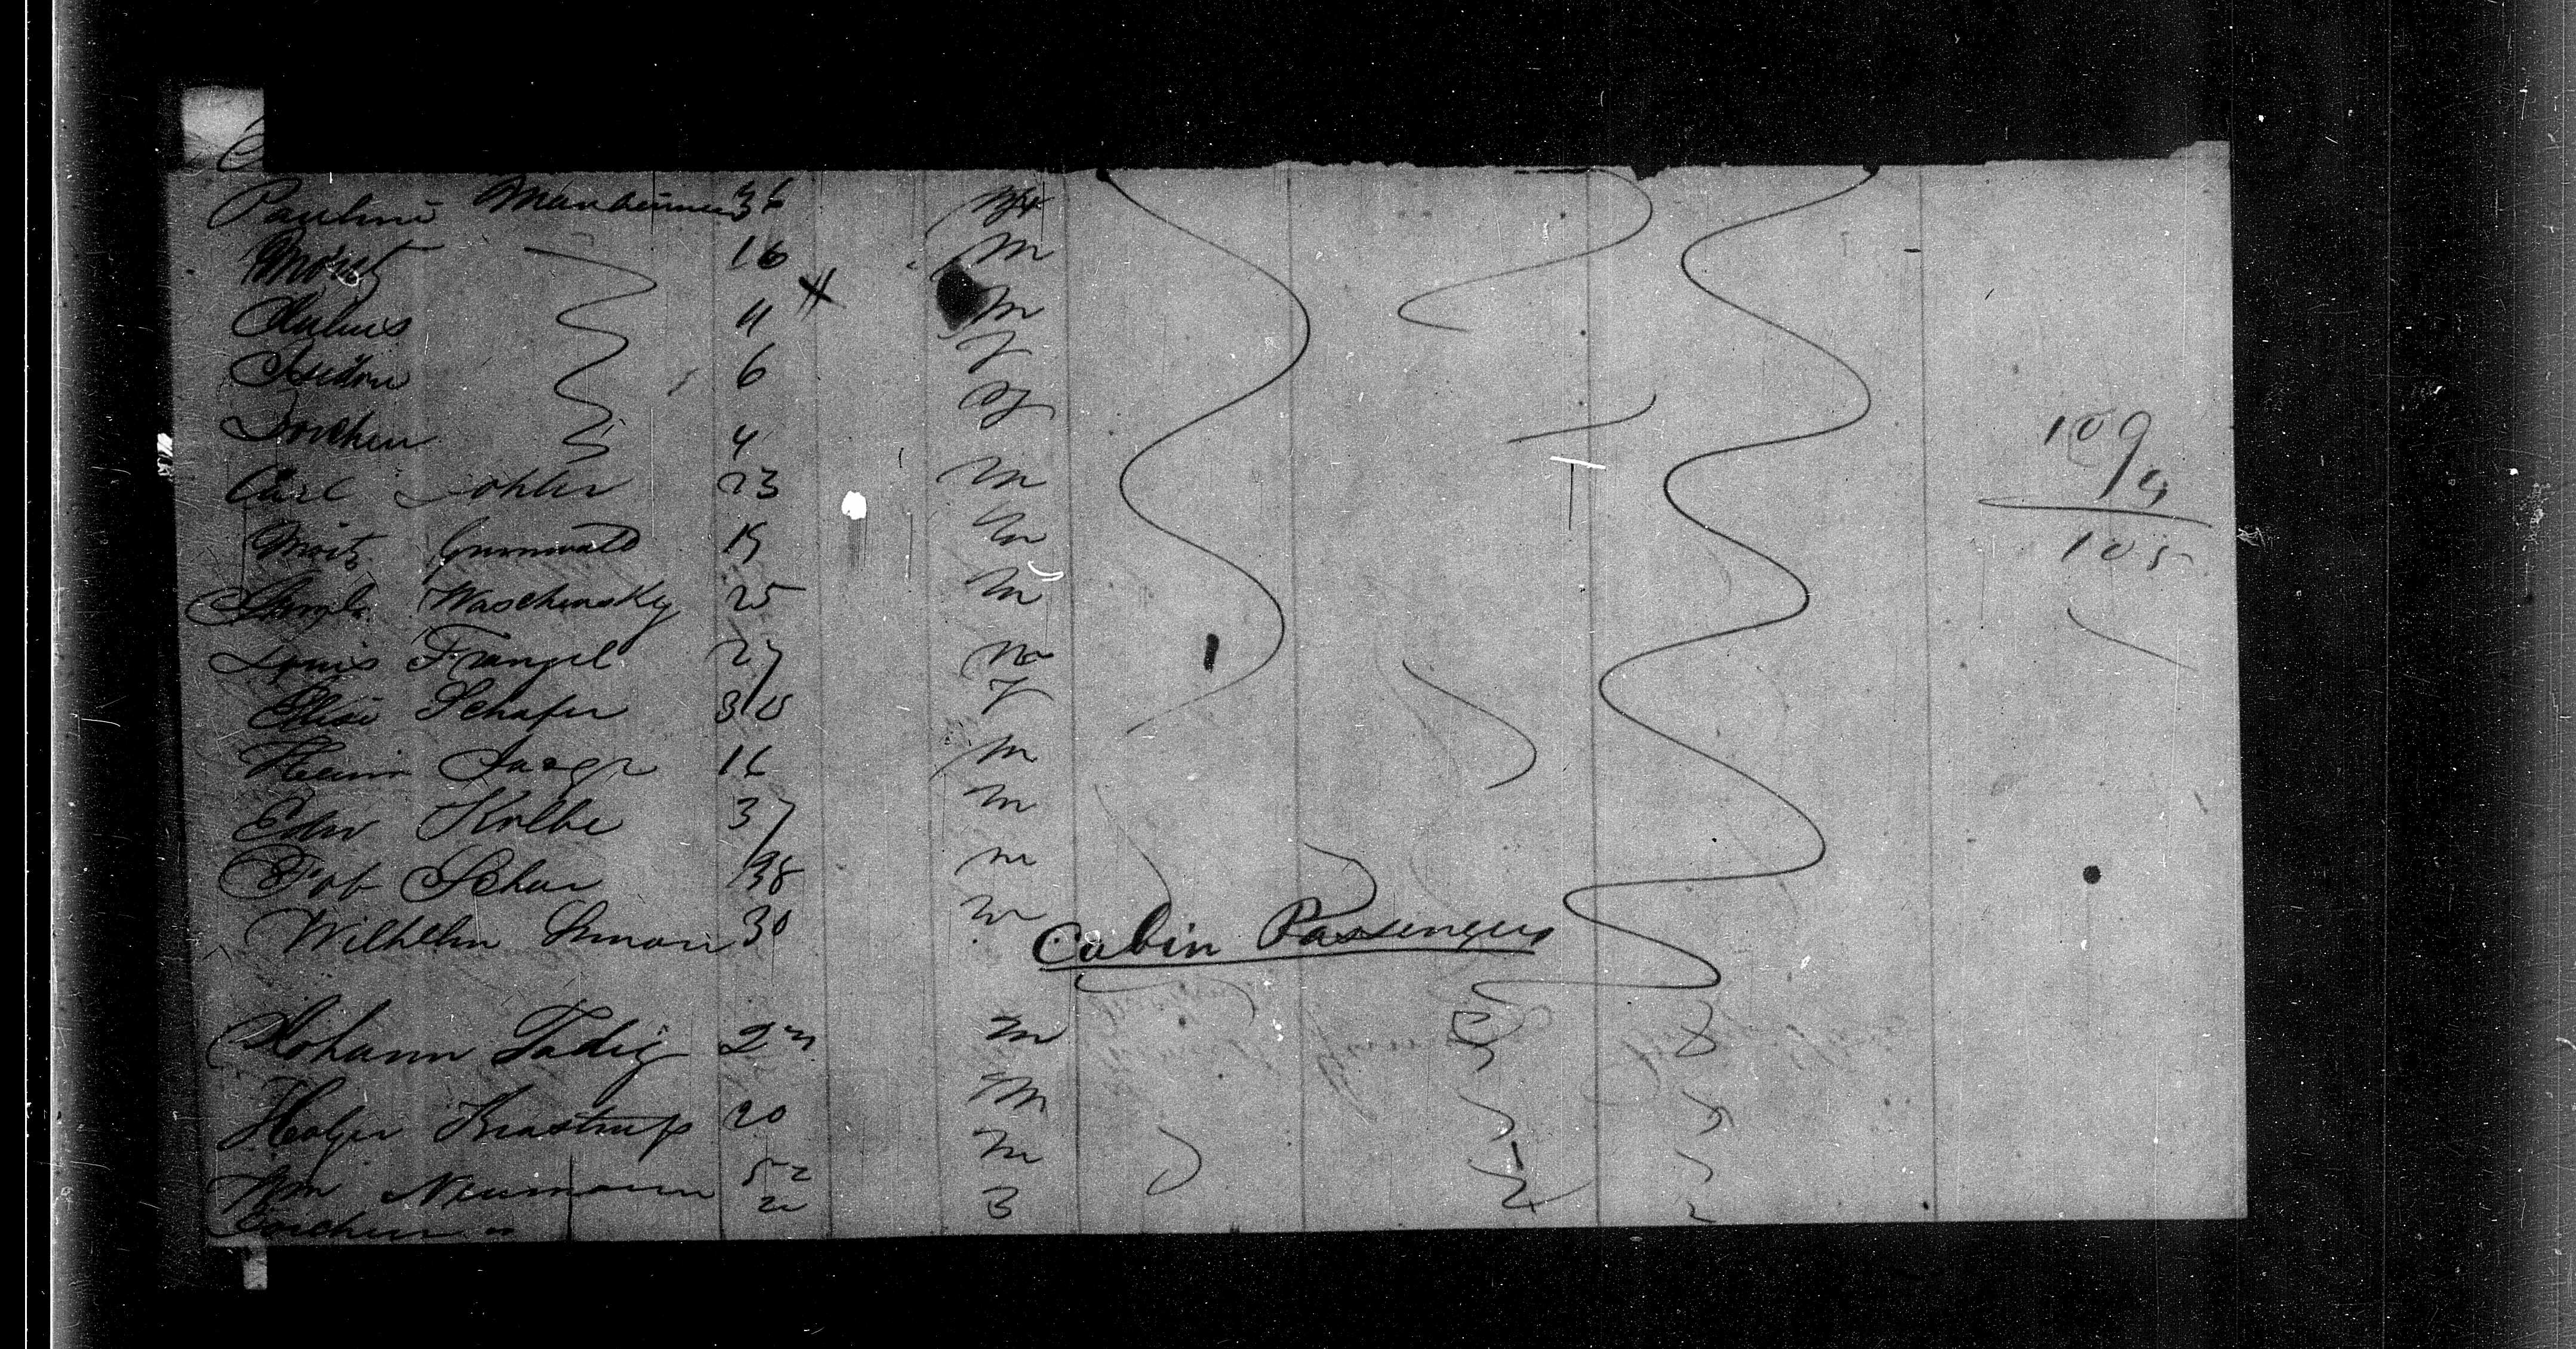 Pauline Manheimer 36
Moritz 16 M
Julius 11 M
Isidor 6
Dorchen 4
Carl Kohler 23 M
Moritz Grunwald 19 M
Waschinsky 25 M
Louis Frangel 27 M
Elise Schafer 30 F
Heinr Jaeger 16 M
Edw Kolbe 37 M
38 m
Wilhelm Simon 30 m
Cabin Passengers
Johann Tadig 23 M
Holger Krastrup 20 M
Wm Neumann 52 M
Dorchen " 22
109
4
105